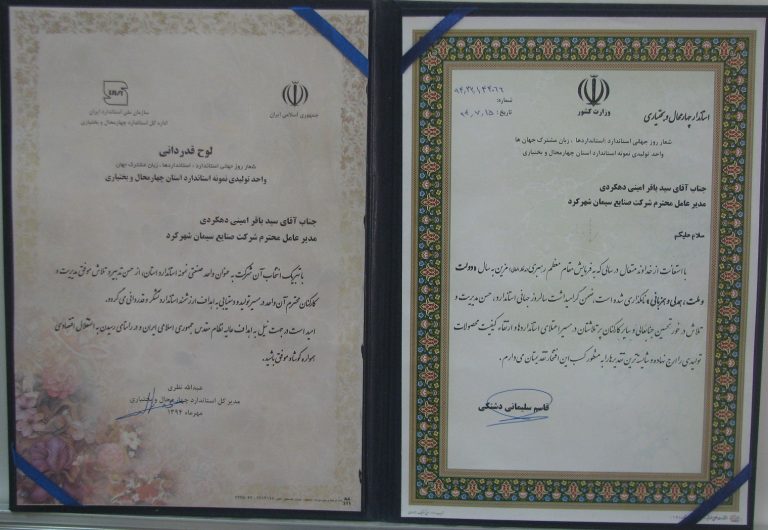 جمهوری اسلامی ایران
سازمان ملی استاندارد ایران
اداره کل استاندارد چهارمحال و بختیاری
لوح قدردانی
شعار روز جهانی استاندارد : استانداردها ، زبان مشترک جهان
واحد تولیدی نمونه استاندارد استان چهارمحال و بختیاری
جناب آقای سید باقر امینی دهکردی
مدیر عامل محترم شرکت صنایع سیمان شهرکرد
با تبریک انتخاب آن شرکت به عنوان واحد صنعتی نمونه استاندارد استان، از حسن تدبیر و تلاش موفق مدیریت و
کارکنان محترم آن واحد در مسیر تولید و دستیابی به اهداف ارزشمند استاندارد تشکر و قدردانی می گردد.
امید است در جهت نیل به اهداف عالیه نظام مقدس جمهوری اسلامی ایران و در راستای رسیدن به استقلال اقتصادی
همواره کوشا و موفق باشید.
عبدالله نظری
مدیر کل استاندارد چهارمحال و بختیاری
مهرماه ۱۳۹۴
استاندار چهارمحال و بختیاری
وزارت کشور
شماره:
تاریخ:
شعار روز جهانی استاندارد :استانداردها ، زبان مشترک جهان ها
واحد تولیدی نمونه استاندارد استان چهارمحال و بختیاری
جناب آقای سید باقر امینی دهکردی
مدیر عامل محترم شرکت صنایع سیمان شهرکرد
سلام علیکم
با استعانت از خداوند متعال در سالی که به فرمایش مقام معظم رهبری مزین به سال « دولت
و ملت، همدلی و همزبانی » نامگذاری شده است، ضمن گرامیداشت سالروز جهانی استاندارد، حسن مدیریت و
تلاش در خور تحسین جنابعالی و سایر کارکنان پرتلاشتان در مسیر اعتلای استانداردها و ارتقاء کیفیت محصولات
تولیدی را ارج نهاده و شایسته ترین تقدیرها را به منظور کسب این افتخار تقدیمتان می دارم.
قاسم سلیمانی دشتکی